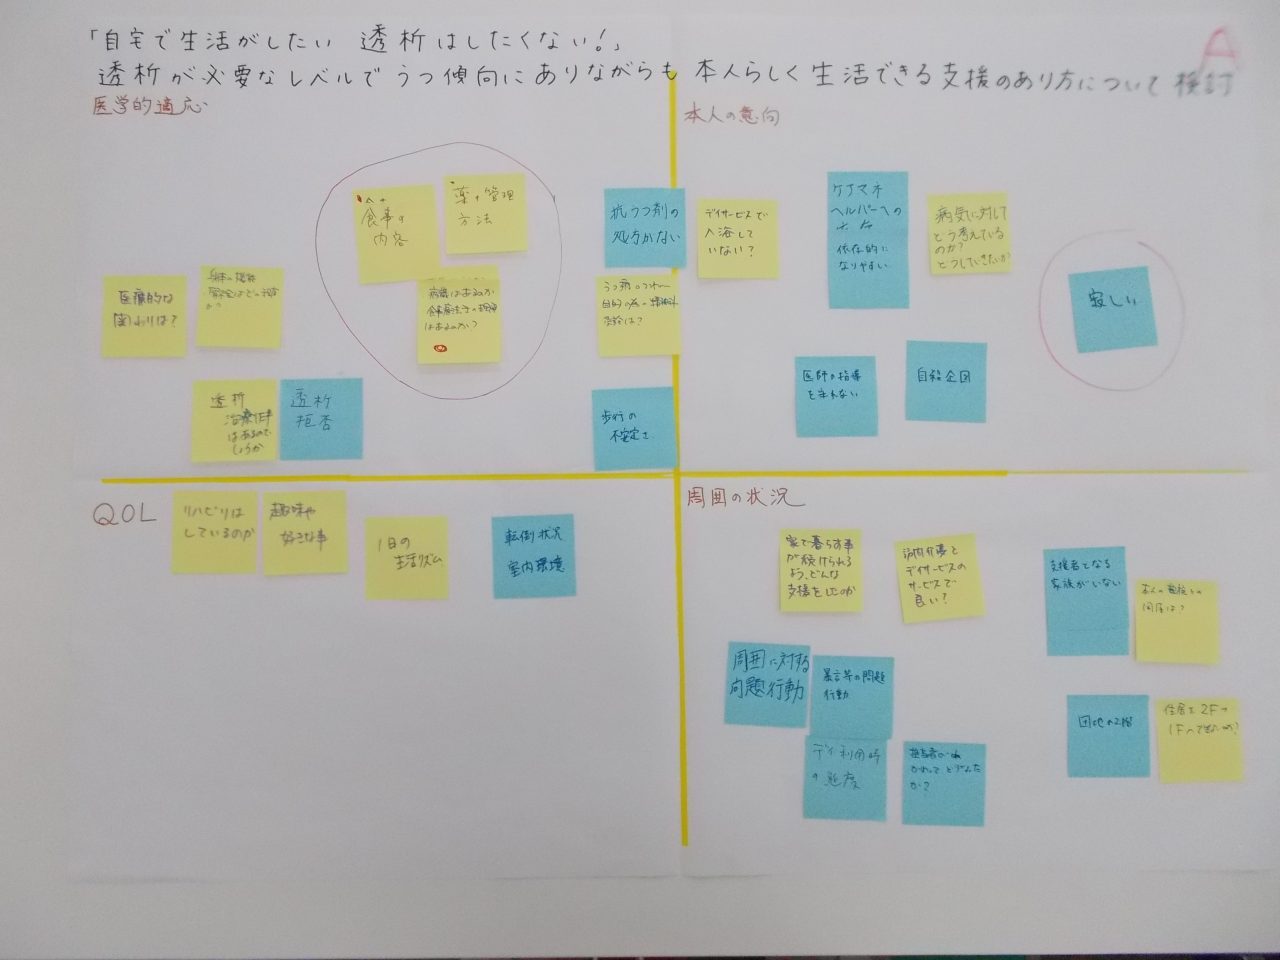 「自宅で生活がしたい 透析はしたくない!」
透析が必要なレベルでうつ傾向にありながらも 本人らしく生活できる支援のあり方について 検討
A
医学的適応
食事の
内容
薬の管理
方法
抗うつ剤の
処方がない
医療的な
関わりは?
病識はあるのか
食事療法等の理解
はあるのか?
うつ病の
透析
治療効果
はあるので
しょうか
透析
拒否
歩行の
不安定さ
本人の意向
デイサービスで
入浴して
いない?
ケアマネ
ヘルパーへの
依存的に
なりやすい
病気に対して
どう考えている
のか?
どうしていきたいか
寂しい
医師の指導
を守れない
自殺企図
QOL
リハビリは
しているのか
趣味や
好きな事
1日の
生活リズム
転倒状況
室内環境
周囲の状況
家で暮らす事
が続けられる
よう、どんな
支援をしたのか
訪問介護と
デイサービスの
サービスで
良い?
支援者となる
家族がいない
周囲に対する
問題行動
暴言等の問題
行動
デイ利用時
の態度
担当者が
かわってどうなった
か?
団地の2階
住居を2F→